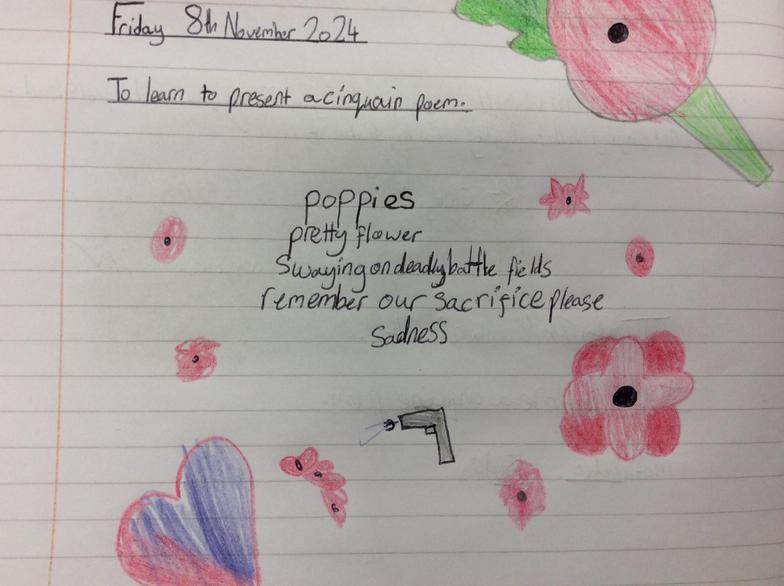 Friday 8th November 2024
To learn to present a cinquain poem.
poppies
pretty flower
Swaying on deadly battle fields
remember our sacrifice please
Sadness